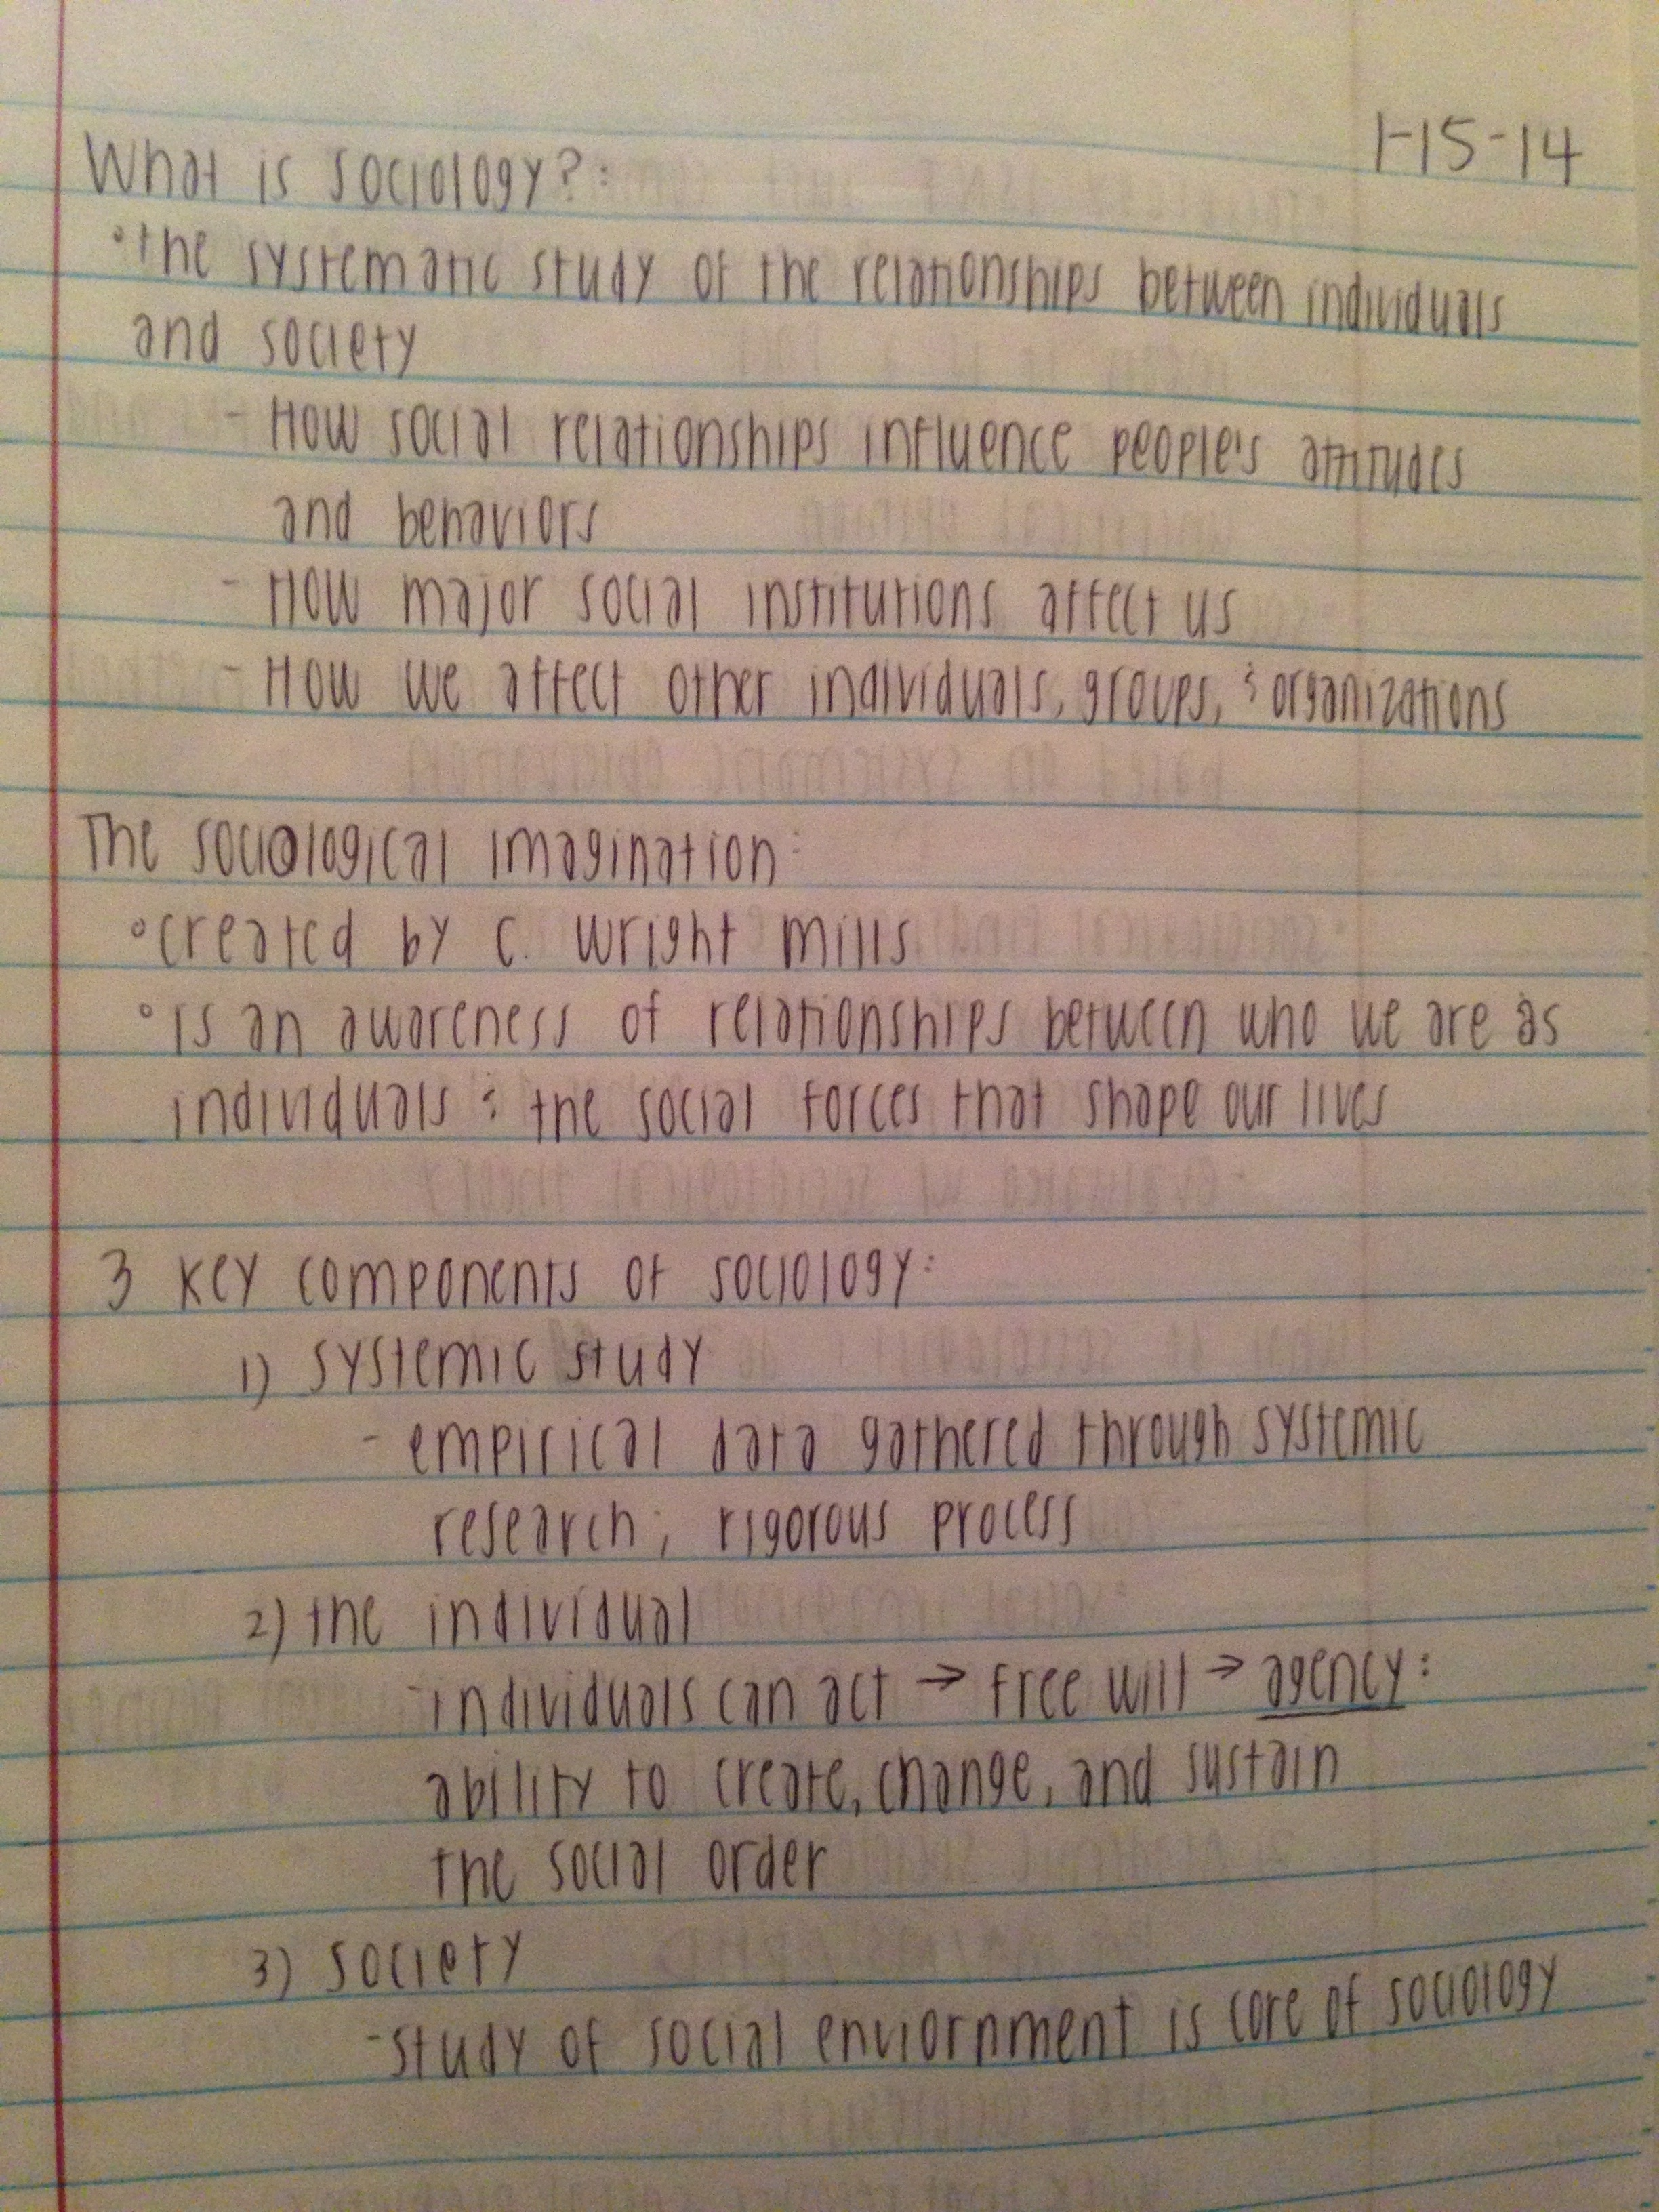 1-15-14
What is sociology?:
• the systematic study of the relationships between individuals
and society
- How social relationships influence people's attitudes
and behaviors
- How major social institutions affect us
- How we affect other individuals, groups, & organizations
The sociological imagination:
• created by C. Wright Mills
• is an awareness of relationships between who we are as
individuals & the social forces that shape our lives
3 key components of sociology:
1) systemic study
- empirical data gathered through systemic
research; rigorous process
2) the individual
- individuals can act → free will → agency:
ability to create, change, and sustain
the social order
3) society
- study of social enviornment is core of sociology